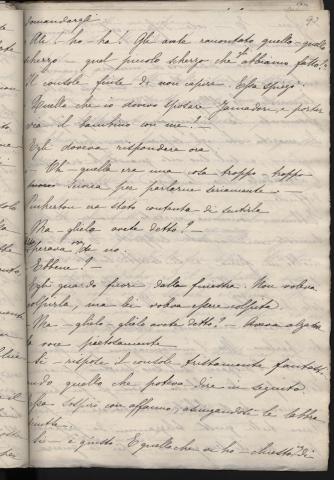 domandargli
- Ah! ho-ha! Gli avete raccontato quello - quello
scherzo - quel piccolo scherzo che vi abbiamo fatto?
Il console finse di non capire. Essa spiegò:
Quello che io dovevo sposare Yamadori, e portar
via il bambino con me! -
Egli doveva rispondere ora
- Oh - quella era una cosa troppo - troppo
sciocca per parlarne seriamente -
Pinkerton era stato contento di sentirla
- Ma - gliela avete detto? -
Sperava di no.
- Ebbene? -
Egli guardò fuori dalla finestra. Non voleva
colpirla, ma lei voleva essere colpita
- Ma - glielo - glielo avete detto? - Aveva alzato
la voce pietosamente
- Sì - rispose il console tristamente fantasti-
cando quello che poteva dire in seguito
Essa sospirò con affanno, asciugandosi le labbra
- Sì - è giusto. E quello che vi ho - chiesto di